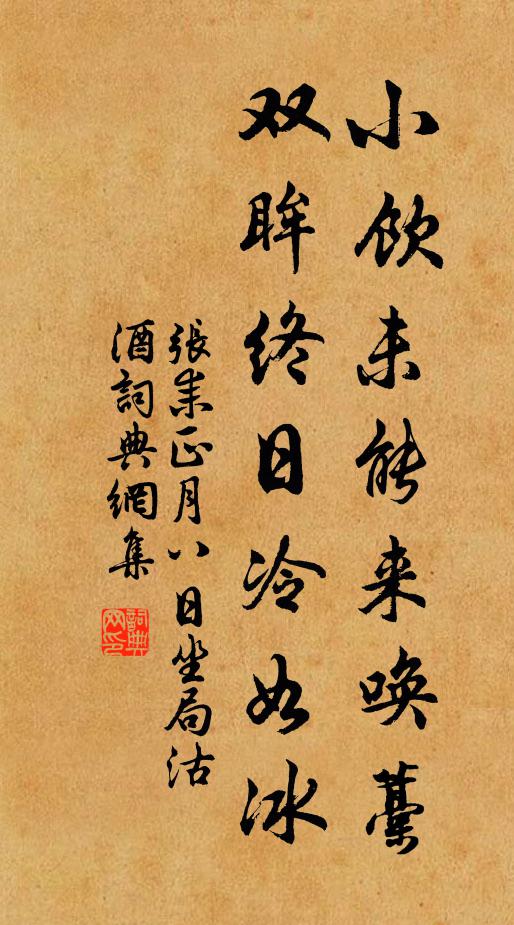 小饮未能来唤藁
双眸终日冷如冰
張耒正月八日坐局沽
酒詞典網集
詞典网印